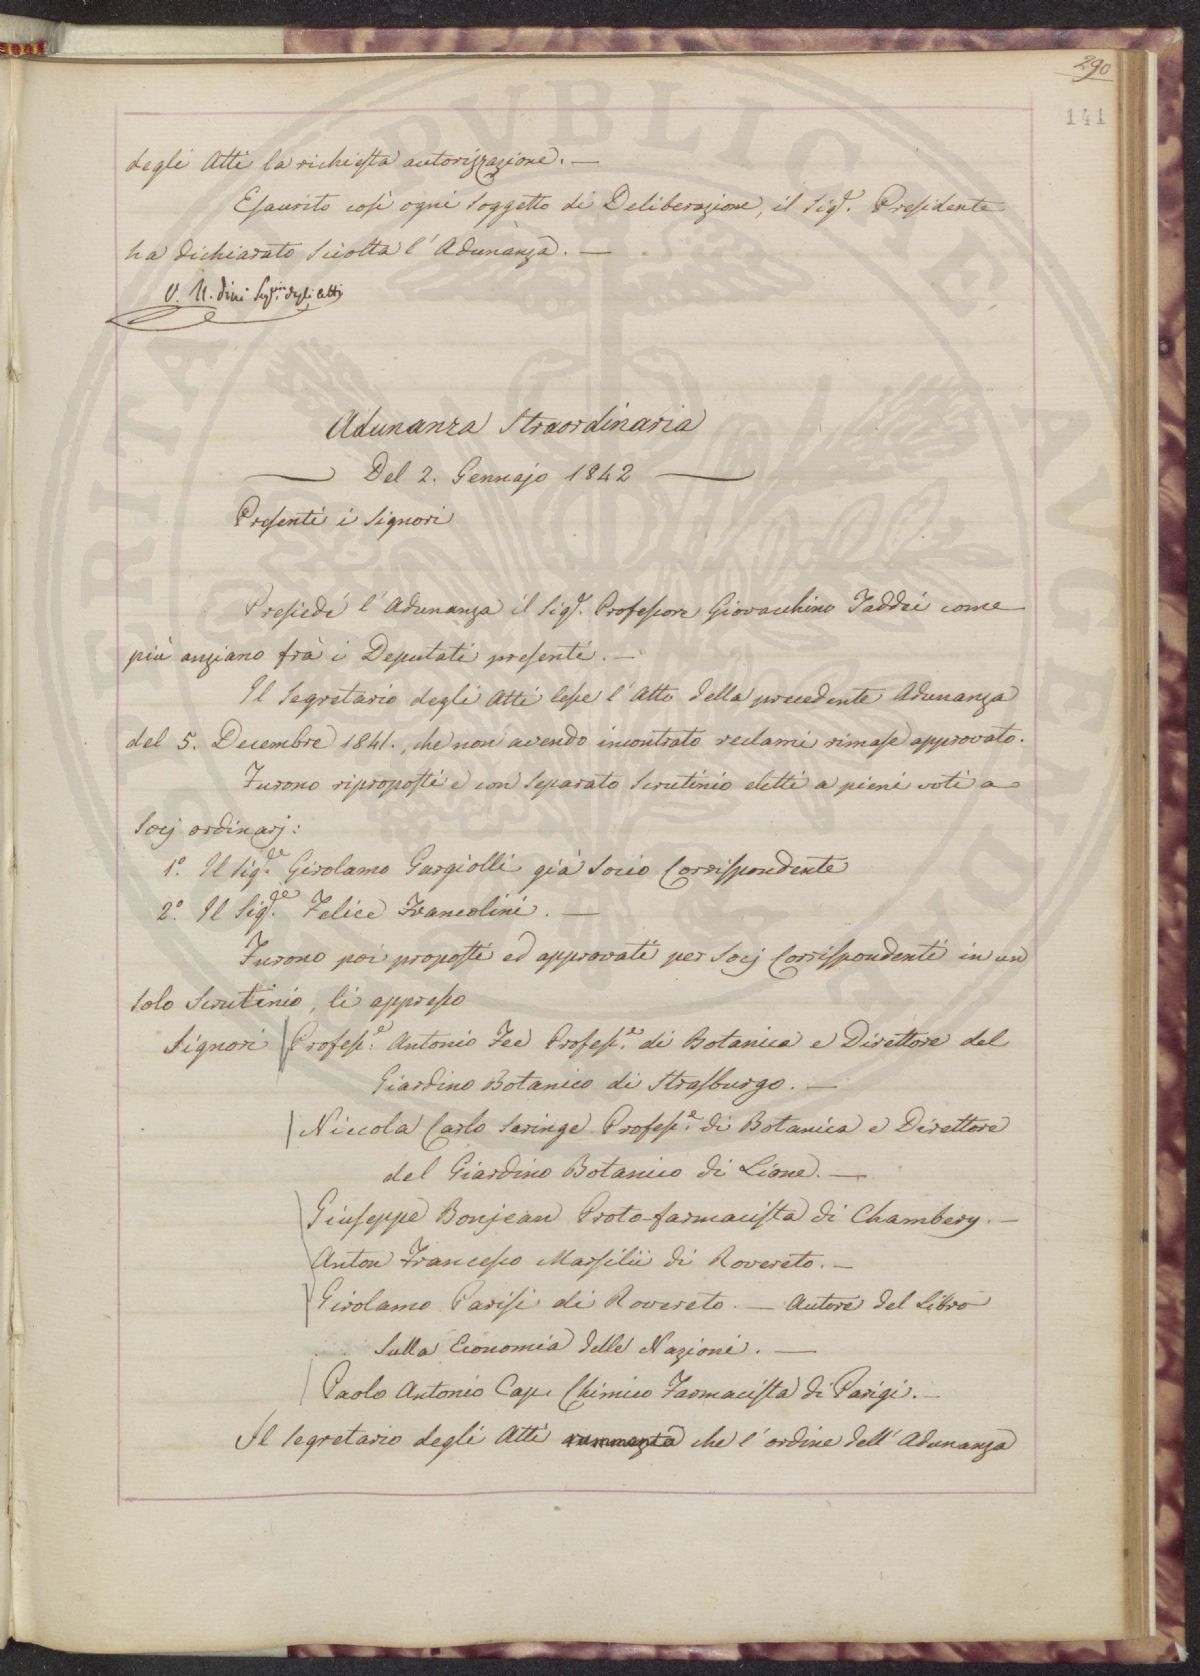 290
141
degli Atti la richiesta autorizzazione. —
Esaurito così ogni soggetto di Deliberazione, il Sigʳ. Presidente
ha dichiarato sciolta l'Adunanza. —
V. U. dini Segʳⁱᵒ. degli Atti
Adunanza Straordinaria
Del 2. Gennajo 1842
Presenti i Signori
Presiedé l'Adunanza il Sigʳ. Professore Giovacchino Taddei come
più anziano frà i Deputati presenti. —
Il Segretario degli Atti lesse l'Atto della precedente Adunanza
del 5. Decembre 1841., che non avendo incontrato reclami rimase approvato.
Furono riproposti e con separato Scrutinio eletti a pieni voti a
Socj ordinarj:
1°. Il Sigʳᵉ. Girolamo Gargiolli già Socio Corrispondente
2°. Il Sigʳᵉ. Felice Francolini. —
Furono poi proposti ed approvati per Socj Corrispondenti in un
solo Scrutinio, li appresso
Signori Profesˢᵉ. Antonio Fee Profesˢᵉ. di Botanica e Direttore del
Giardino Botanico di Strasburgo. —
Niccola Carlo Seringe Profesˢᵉ. di Botanica e Direttore
del Giardino Botanico di Lione. —
Giuseppe Bonjean Proto-farmacista di Chambery. —
Anton Francesco Marsilii di Rovereto. —
Girolamo Parisi di Rovereto. — Autore del Libro
sulla Economia delle Nazioni. —
Paolo Antonio Cap. Chimico Farmacista di Parigi. —
Il Segretario degli Atti rammenta che l'ordine dell'Adunanza